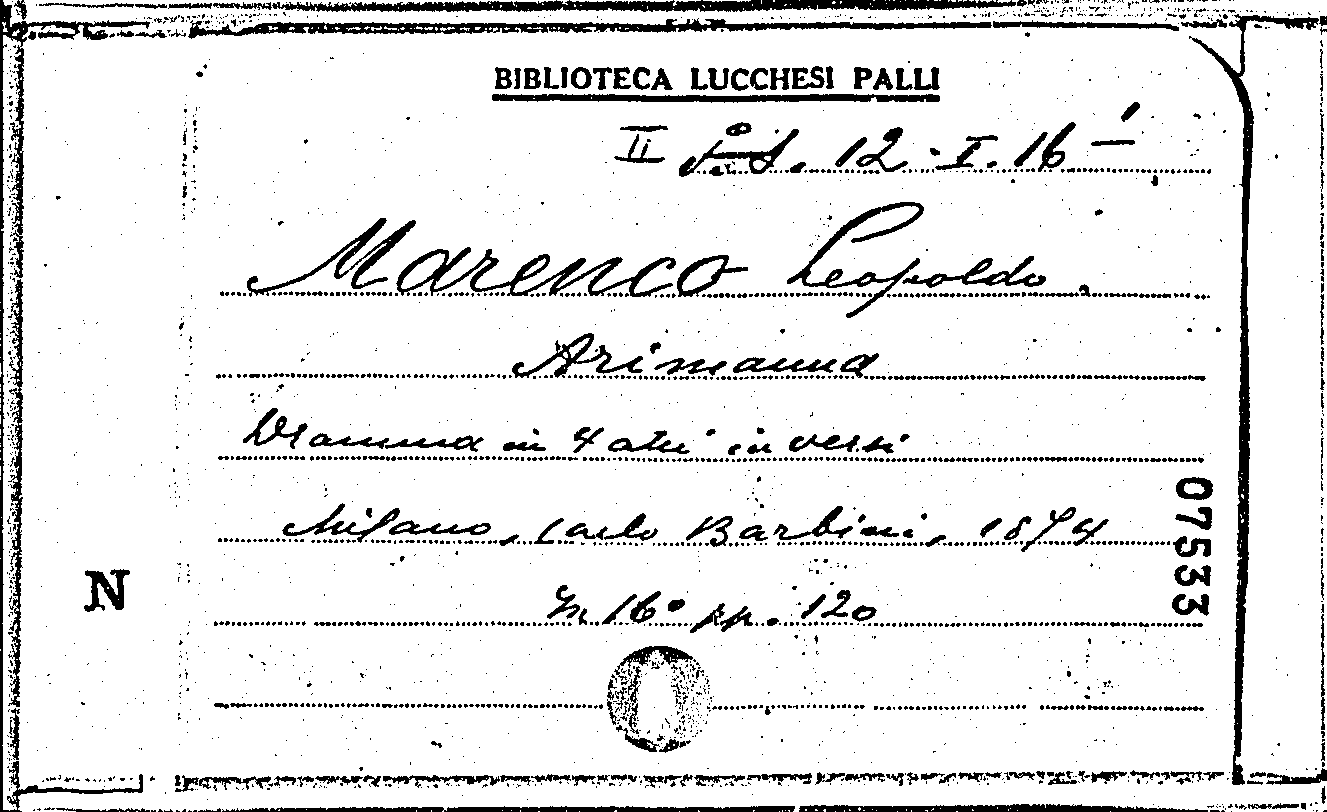 BIBLIOTECA LUCCHESI PALLI
II 12. I. 16
Marenco Leopoldo.
Arimanna
Dramma in 4 atti in versi
Milano, Carlo Barbini, 1874
In 16° pp. 120
07533
N